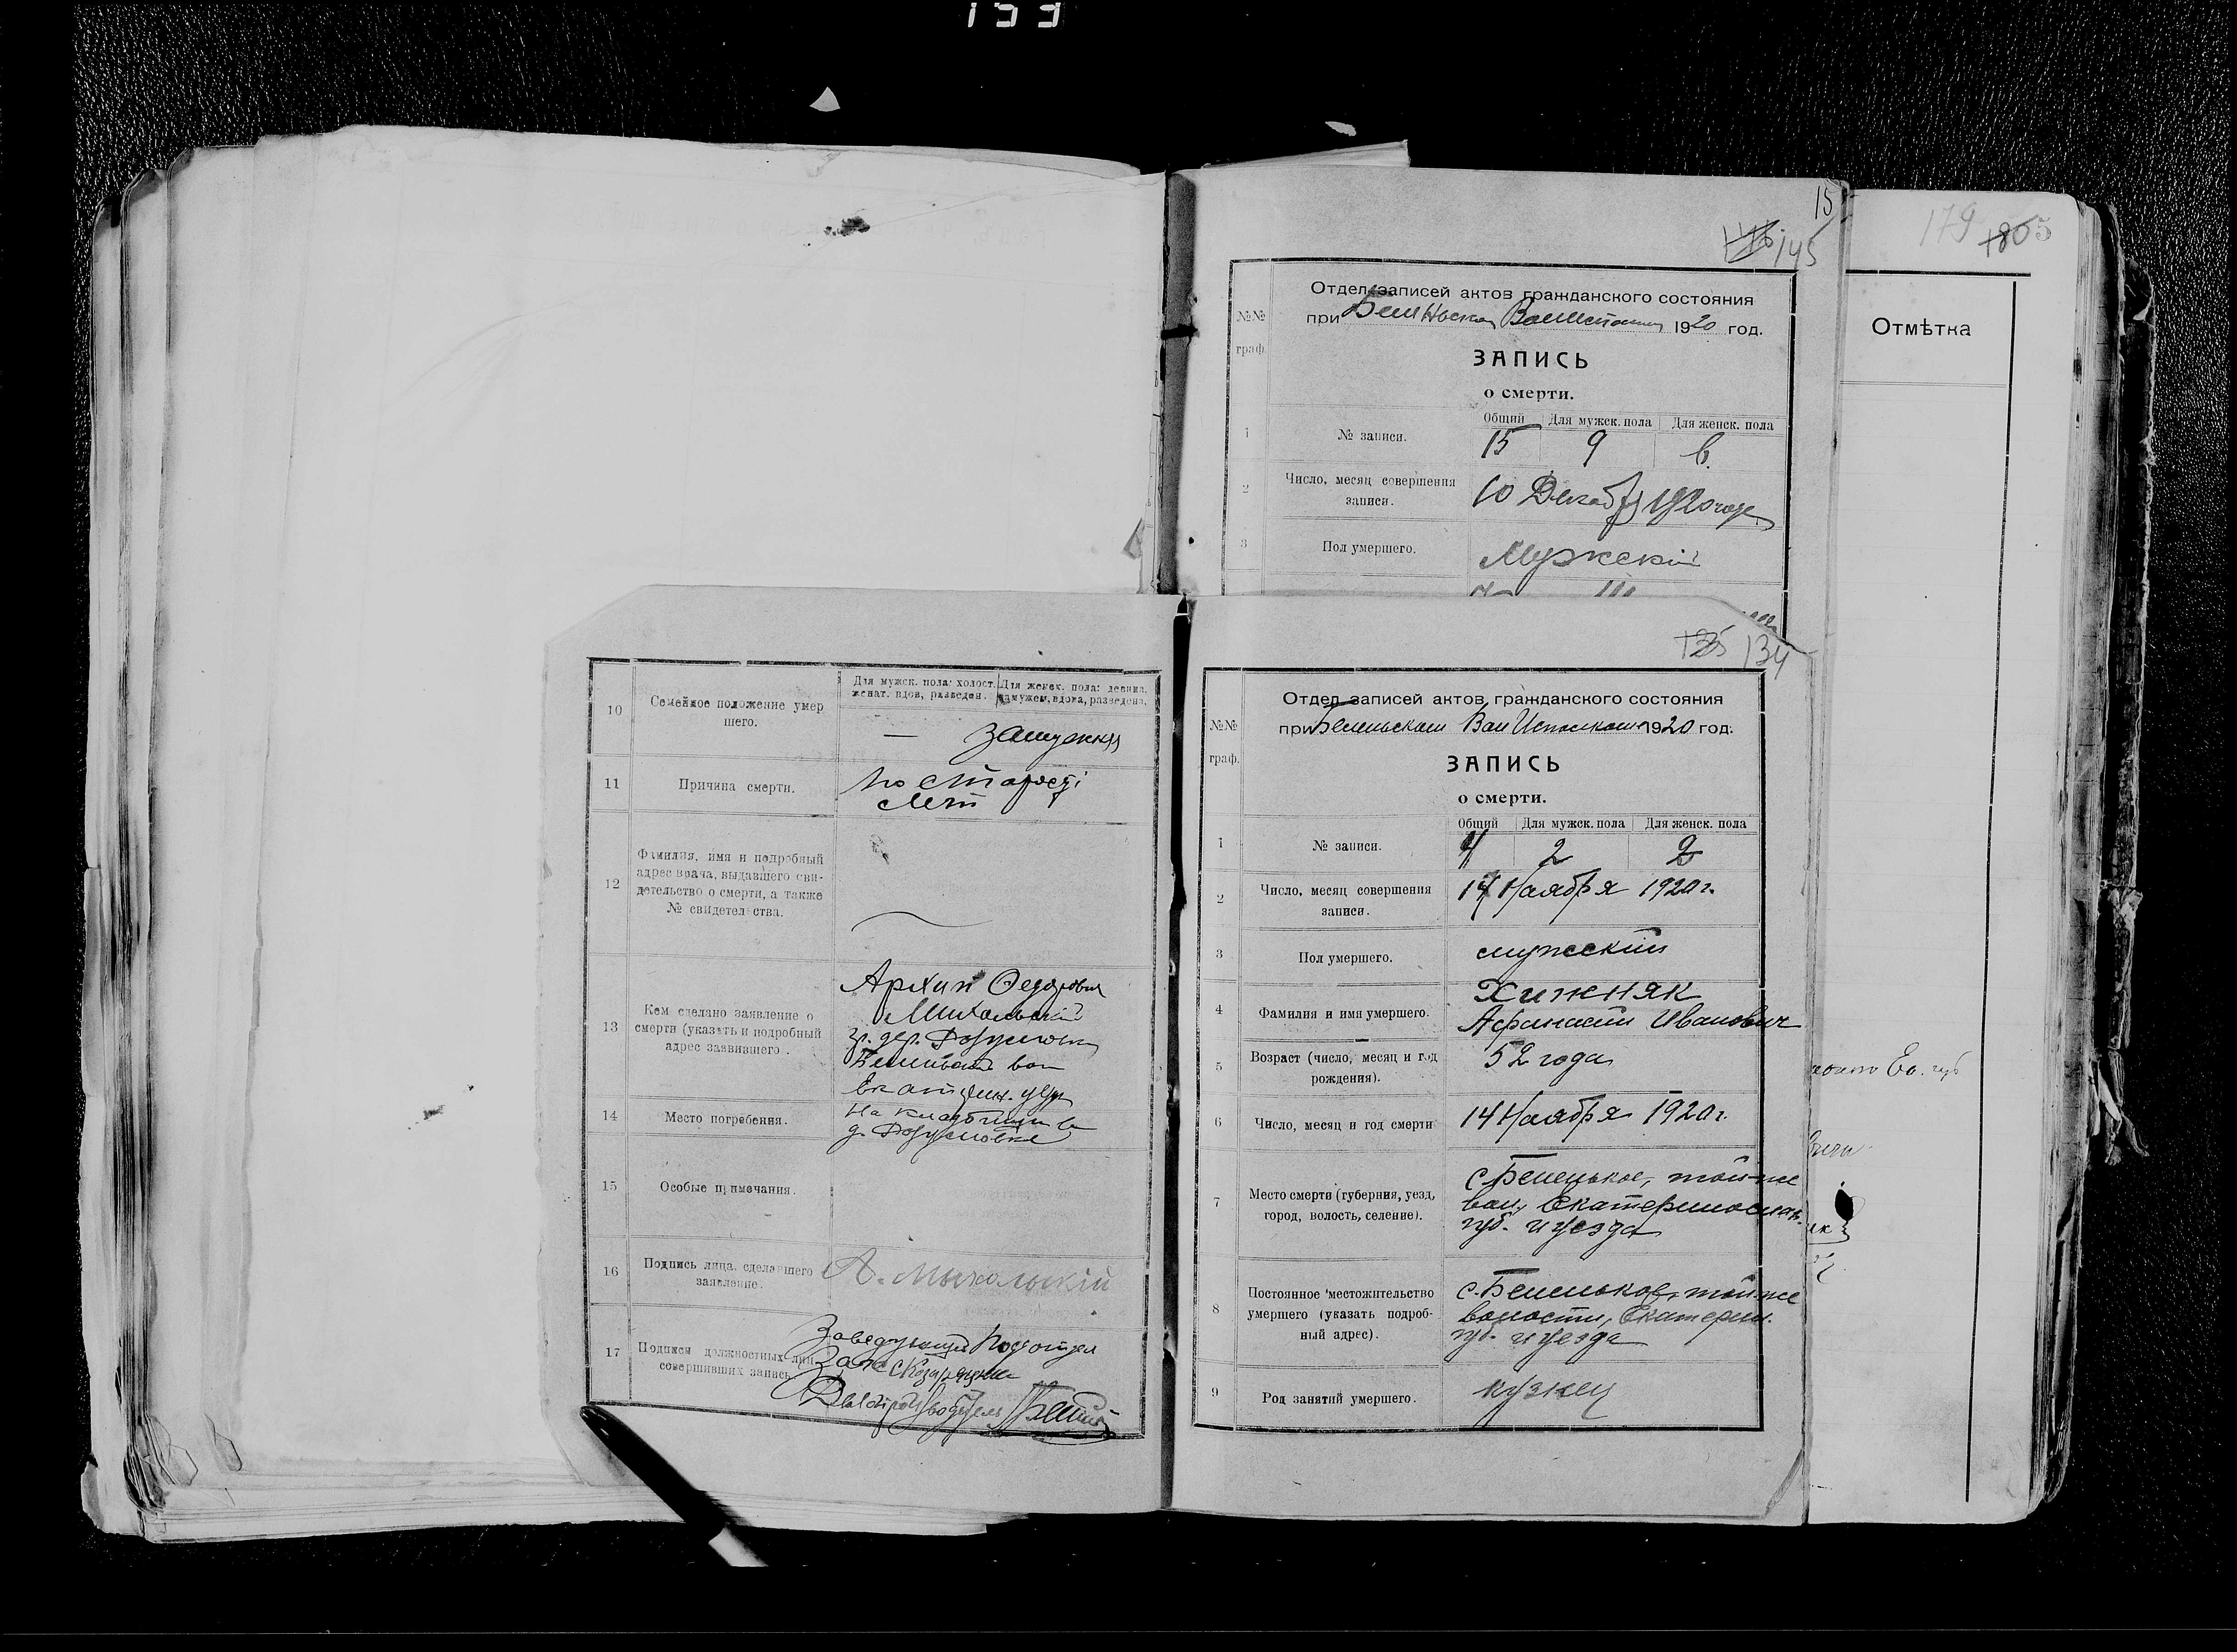 153
15
145
179
1805
Отмѣтка
№№ граф.
Отдел записей актов гражданского состояния
при 1920 год.
ЗАПИСЬ
о смерти.
Общий Для мужск. пола Для женск. пола
1 № записи. 15 9 6
2 Число, месяц совершения записи. 10 Декабря 1920 года
3 Пол умершего. Мужскій
10 Семейное положение умершего.
Для мужск. пола: холост. женат. вдов, разведен.
Для женск. пола: девица, замужем, вдова, разведена.
— замужняя
11 Причина смерти.
по старості
лет
12 Фамилия, имя и подробный
адрес врача, выдавшего сви-
детельство о смерти, а также
№ свидетельства.
13 Кем сделано заявление о
смерти (указать и подробный
адрес заявившего).
Архип Федорович
Михальский
гр. дер.
вол
Екатерин. уезд
14 Место погребения.
на кладбищи в
д.
15 Особые примечания.
16 Подпись лица, сделавшего
заявление.
А. Михальскій
17 Подписи должностных лиц
совершивших запись.
Заведующий Подотдел
Делопроизводитель
135 134
№№ граф.
Отдел записей актов гражданского состояния
при Беленьском Вол Исполкоме 1920 год.
ЗАПИСЬ
о смерти.
Общий Для мужск. пола Для женск. пола
1 № записи. 4 2 2
2 Число, месяц совершения
записи.
14 Ноября 1920 г.
3 Пол умершего. мужский
4 Фамилия и имя умершего.
Хижняк
Афанасий Иванович
5 Возраст (число, месяц и год
рождения).
52 года
6 Число, месяц и год смерти 14 Ноября 1920 г.
7 Место смерти (губерния, уезд,
город, волость, селение).
с. Беленькое, той-же
вол., Екатеринослав.
губ. и уезда
8 Постоянное местожительство
умершего (указать подроб-
ный адрес).
с. Беленькое, той-же
волости, Екатерин.
губ. и уезда
9 Род занятий умершего. кузнец